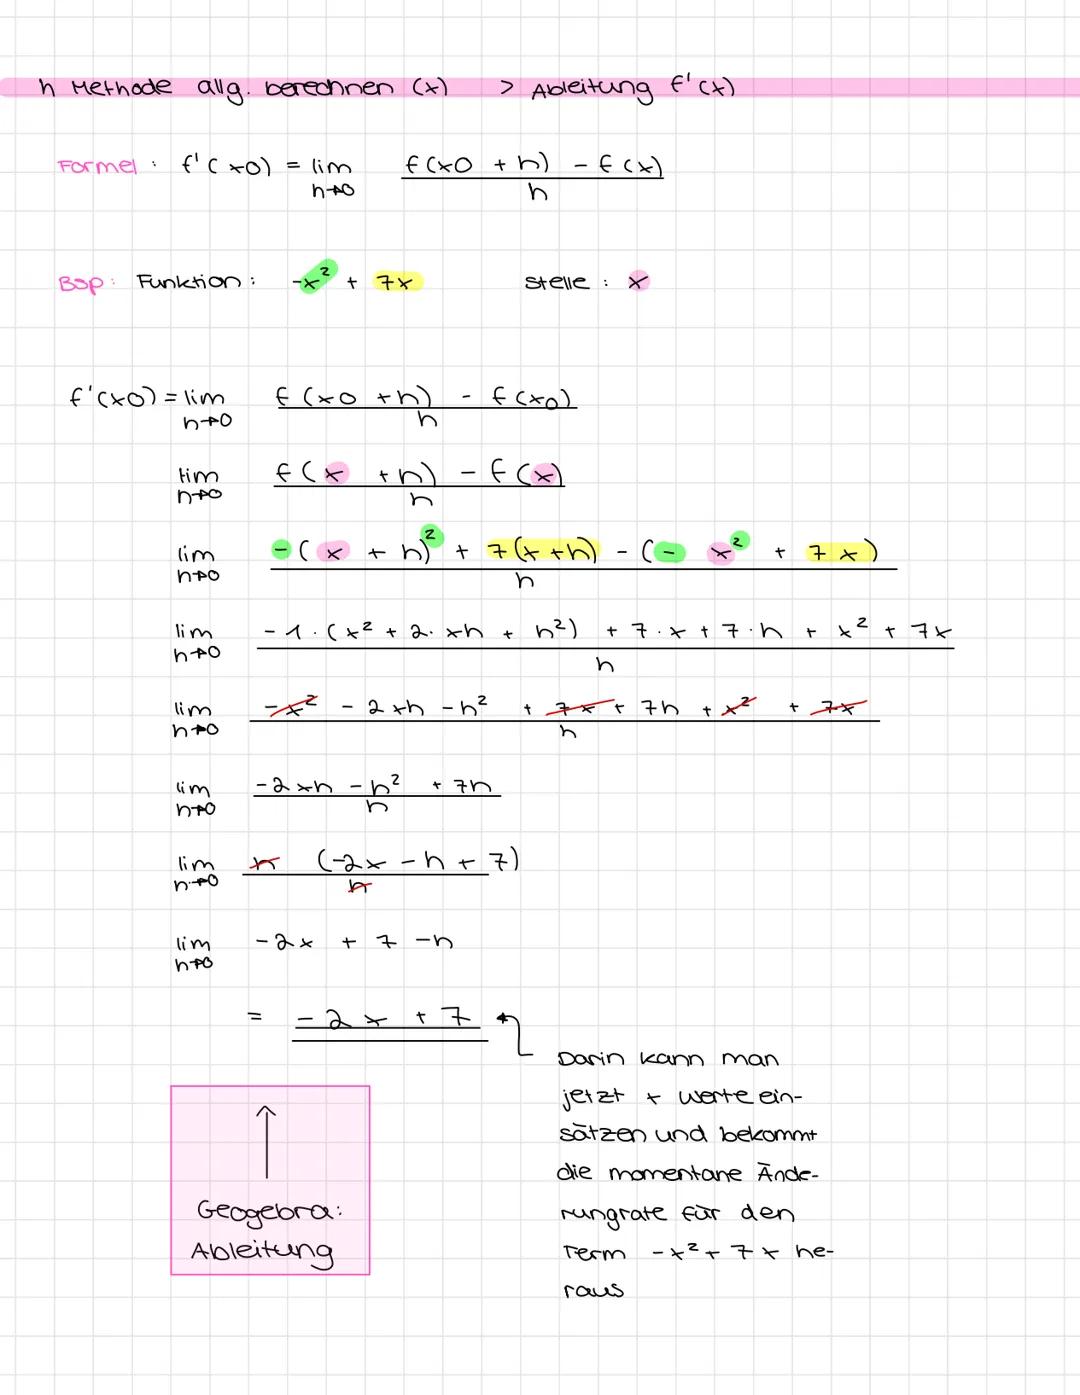 h Methode allg. berechnen (x) > Ableitung f'(x)
Formel : f'(x0) = lim h→0 f(x0 + h) - f(x) / h
Bsp: Funktion: -x² + 7x Stelle : x
f'(x0) = lim h→0 f(x0 + h) - f(x0) / h
lim h→0 f(x + h) - f(x) / h
lim h→0 -(x + h)² + 7(x+h) - (- x² + 7x) / h
lim h→0 -1·(x² + 2·xh + h²) + 7·x + 7·h + x² + 7x / h
lim h→0 -x² - 2xh - h² + 7x + 7h + x² + 7x / h
lim h→0 -2xh - h² + 7h / h
lim h→0 h (-2x - h + 7) / h
lim h→0 -2x + 7 - h
= -2x + 7
Darin kann man
jetzt x werte ein-
sätzen und bekommt
die momentane Ände-
rungrate für den
Term -x² + 7x he-
raus
Geogebra:
Ableitung